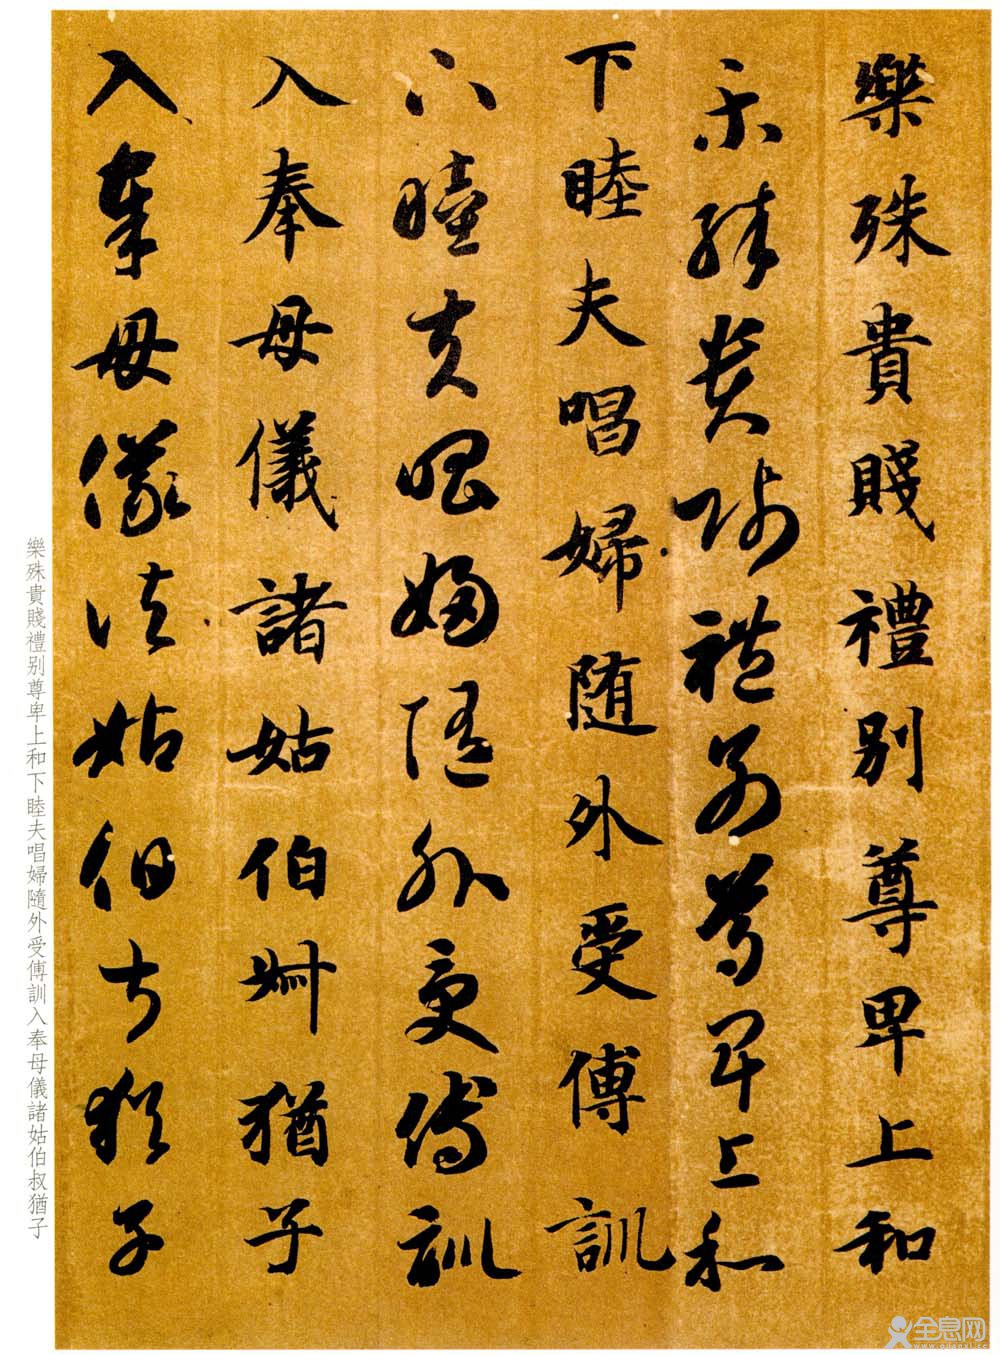 樂殊貴賤禮別尊卑上和
樂殊貴賤禮別尊卑上和
下睦夫唱婦随外受傅訓
下睦夫唱婦随外受傅訓
入奉母儀諸姑伯叔猶子
入奉母儀諸姑伯叔猶子
樂殊貴賤禮別尊卑上和下睦夫唱婦隨外受傅訓入奉母儀諸姑伯叔猶子
全息网